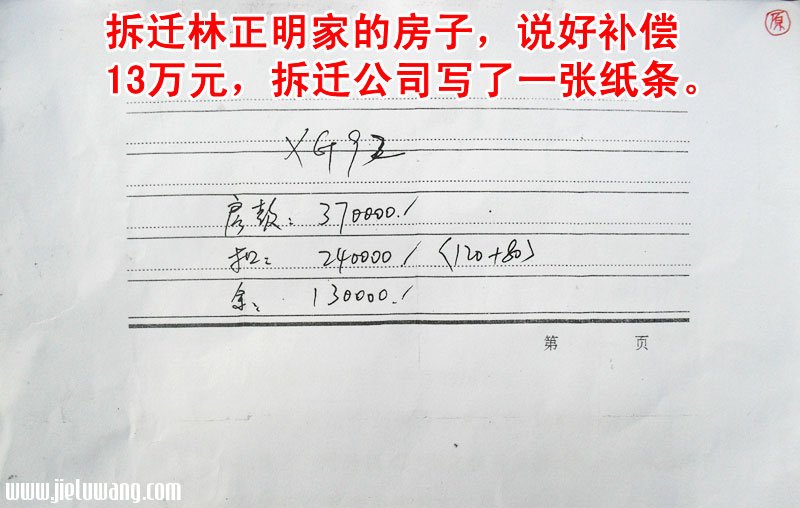 原
拆迁林正明家的房子，说好补偿
13万元，拆迁公司写了一张纸条。
XG92
房款：370000./
扣：240000/（120+80）
余：130000./
第 页
www.jieluwang.com